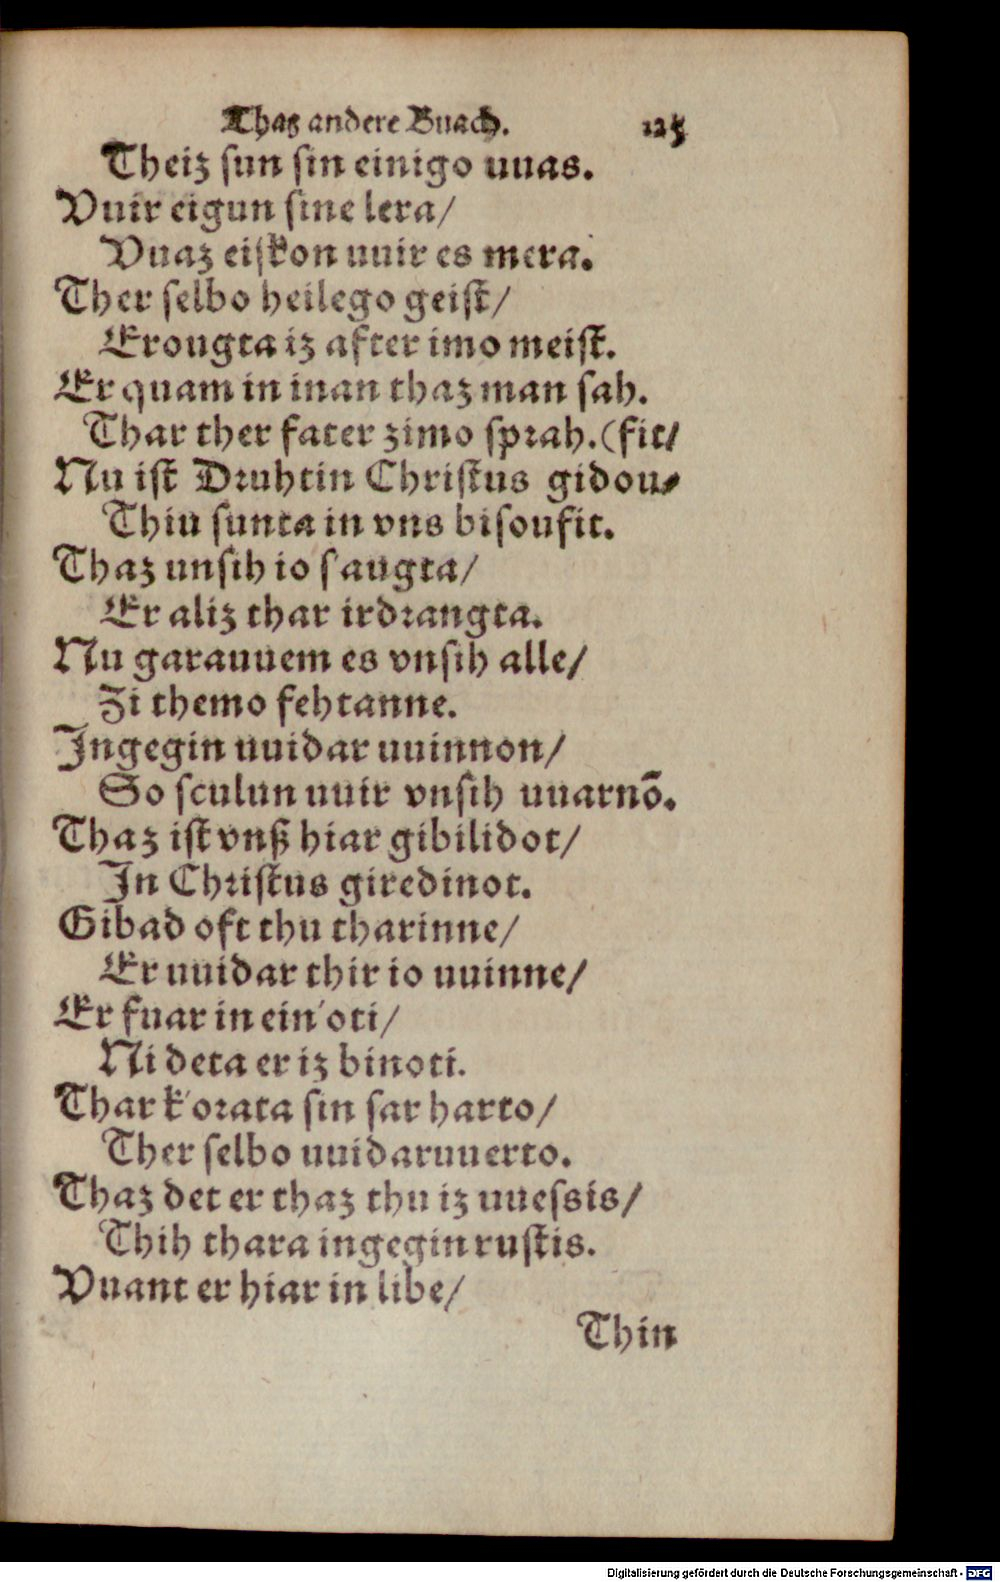 Thaz andere Buach. 125
Theiz sun sin einigo uuas.
Vuir eigun sine lera/
Vuaz eiskon uuir es mera.
Ther selbo heilego geist/
Erougta iz after imo meist.
Er quam in inan thaz man sah.
Thar ther fater zimo sprah. (fit/
Nu ist Druhtin Christus gidou⸗
Thiu sunta in vns bisoufit.
Thaz unsih io saugta/
Er aliz thar irdrangta.
Nu garauuem es vnsih alle/
Zi themo fehtanne.
Ingegin uuidar uuinnon/
So sculun uuir vnsih uuarnō.
Thaz ist vnß hiar gibilidot/
In Christus giredinot.
Gibad oft thu tharinne/
Er uuidar thir io uuinne/
Er fuar in ein'oti/
Ni deta er iz binoti.
Thar k'orata sin sar harto/
Ther selbo uuidaruuerto.
Thaz det er thaz thu iz uuessis/
Thih thara ingegin rustis.
Vuant er hiar in libe/
Thin
Digitalisierung gefördert durch die Deutsche Forschungsgemeinschaft - DFG